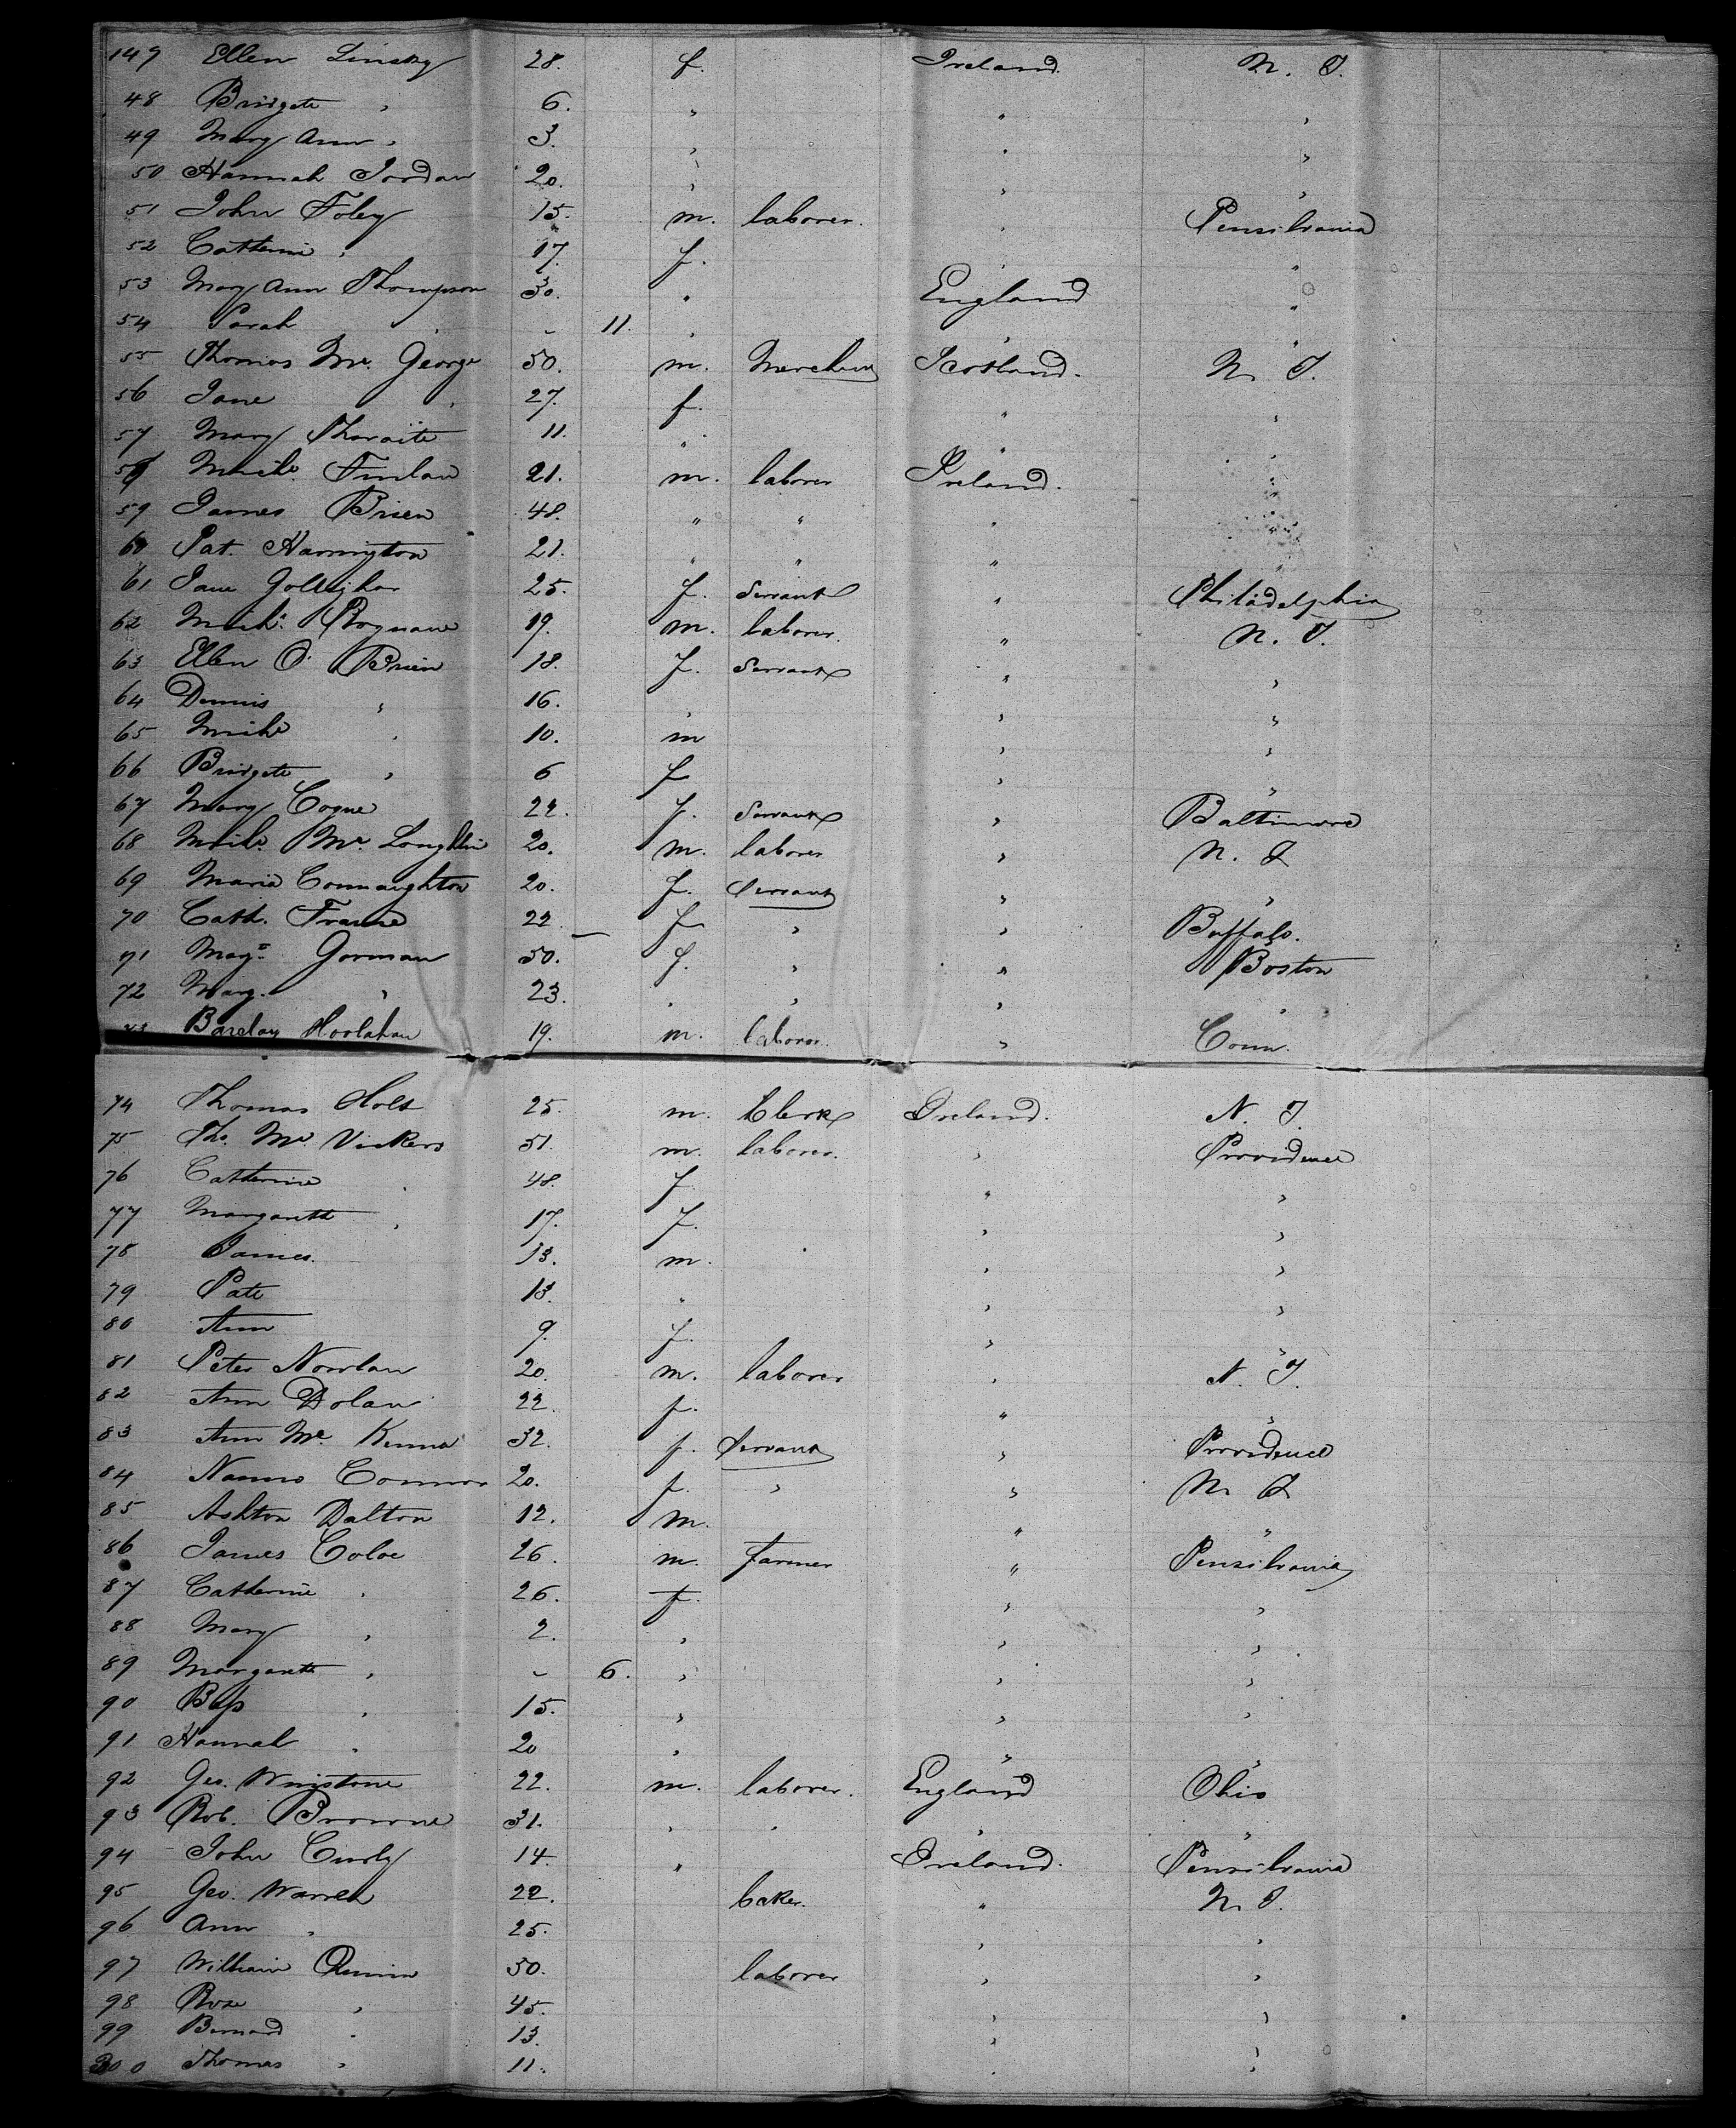 149 Ellen Linsky 28. f. Ireland. N. Y.
48 Bridgete " 6. " " "
49 Mary Ann " 3. " " "
50 Hannah Jordan 20. " " "
51 John Foley 15. m. laborer. " Pensilvania
52 Catterine " 17. f. " "
53 Mary Ann Thompson 30. " England "
54 Sarah " - 11. " " "
55 Thomas Mc. George 50. m. Merchant Scotland. N. Y.
56 Jane " 27. f. " "
57 Mary Thwaite 11. " " "
58 Mich. Finlan 21. m. laborer Ireland. "
59 James Brien 48. " " " "
60 Pat. Harrington 21. " " " "
61 Jane Gollighar 25. f. Servant " Philadelphia
62 Mich. 19. m. laborer. " N. Y.
63 Ellen O. Brien 18. f. Servant " "
64 Dennis " 16. " " "
65 Mich " 10. m " "
66 Bridgete " 6 f " "
67 Mary Cogne 22. f. Servant " Baltimore
68 Mich. Mc. Loughlin 20. m. laborer " N. Y
69 Maria Connaughton 20. f. Servant " "
70 Cath. Frame 22. f " " Buffalo.
71 Mag. Gorman 50. f. " " Boston
72 Marg. " 23. " " " "
73 Barclay Hoolahan 19. m. laborer. " Conn.
74 Thomas Holt 25. m. Clerk Ireland. N. Y.
75 Tho. Mc. Vickers 51. m. laborer. " Providence
76 Catterine " 48. f " "
77 Margareth " 17. f. " "
78 James. 13. m. " "
79 Pate 13. " " "
80 Ann 9. f. " "
81 Peter Nowlan 20. m. laborer " N. Y.
82 Ann Dolan 22. f. " "
83 Ann Mc. Kenna 32. f. Servant " Providence
84 Nanno Connor 20. f. " " N. Y
85 Ashton Dalton 12. m. " "
86 James Coloe 26. m. farmer " Pensilvania
87 Catterine " 26. f. " "
88 Mary " 2. " " "
89 Margareth " - 6. " " "
90 Bess " 15. " " "
91 Hannah " 20 " " "
92 Geo. Winstone 22. m. laborer. England Ohio
93 Rob. Browne 31. " " " "
94 John Curly 14. " Ireland. Pensilvania
95 Geo. Warren 22. baker. " N. Y.
96 Ann " 25. " "
97 William Quinn 50. laborer " "
98 Rose " 45. " "
99 Bernard " 13. " "
300 Thomas " 11. " "